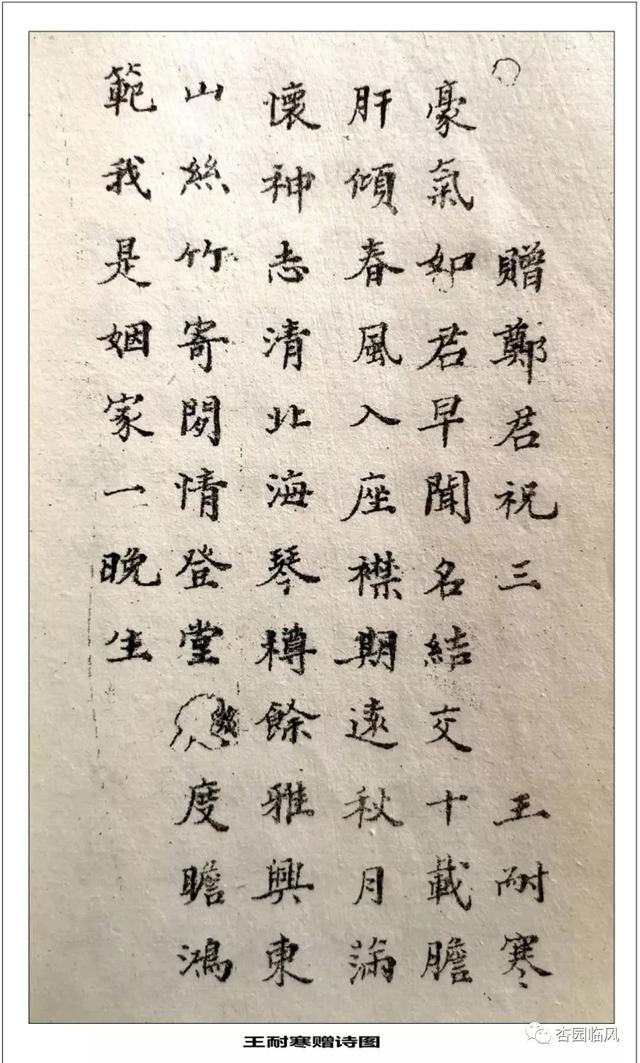 贈鄭君祝三 王耐寒
豪氣如君早聞名結交十載膽
肝傾春風入座襟期遠秋月滿
懷神志清北海琴樽餘雅興東
山絲竹寄閑情登堂度瞻鴻
範我是姻家一晚生
王耐寒赠诗图
杏园临风